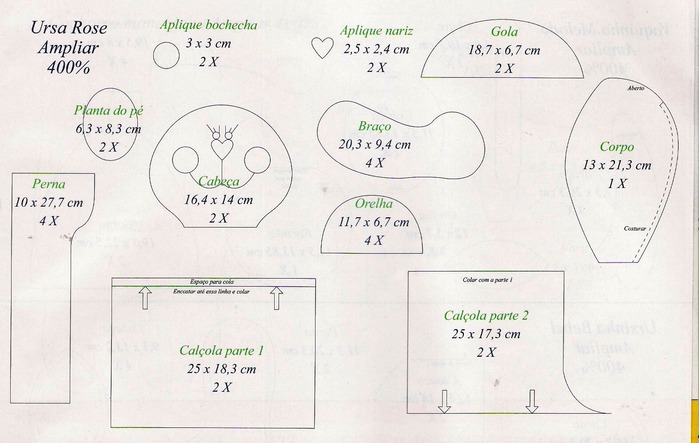 Ursa Rose
Ampliar
400%
Aplique bochecha
3 x 3 cm
2 X
Aplique nariz
2,5 x 2,4 cm
2 X
Gola
18,7 x 6,7 cm
2 X
Planta do pé
6,3 x 8,3 cm
2 X
Cabeça
16,4 x 14 cm
2 X
Braço
20,3 x 9,4 cm
4 X
Aberto
Corpo
13 x 21,3 cm
1 X
Costurar
Perna
10 x 27,7 cm
4 X
Orelha
11,7 x 6,7 cm
4 X
Espaço para cola
Encostar até essa linha e colar
Calçola parte 1
25 x 18,3 cm
2 X
Colar com a parte 1
Calçola parte 2
25 x 17,3 cm
2 X